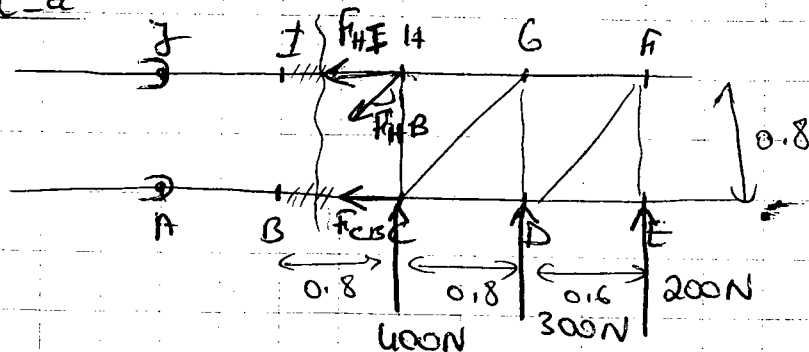 J I F_HI H G F
F_HB
0.8
A B F_CB C D E
0.8 0.8 0.6 200N
400N 300N